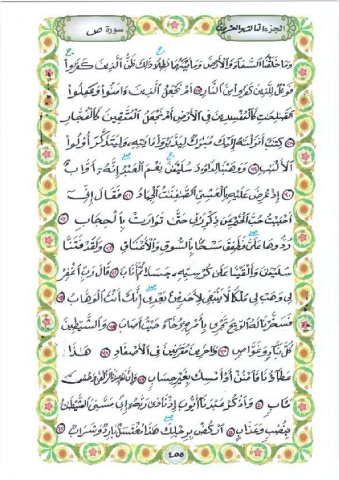 الجزء الثالث والعشرون
سورة ص
وما خلقنا السماء والأرض وما بينهما بطلا ذلك ظن الذين كفروا
فويل للذين كفروا من النار أم نجعل الذين ءامنوا وعملوا
الصلحت كالمفسدين في الأرض أم نجعل المتقين كالفجار
كتب أنزلنه إليك مبرك ليدبروا ءايته وليتذكر أولوا
الألبب ووهبنا لداود سليمن نعم العبد إنه أواب
إذ عرض عليه بالعشي الصفنت الجياد فقال إني
أحببت حب الخير عن ذكر ربي حتى توارت بالحجاب
ردوها علي فطفق مسحا بالسوق والأعناق ولقد فتنا
سليمن وألقينا على كرسيه جسدا ثم أناب قال رب اغفر
لي وهب لي ملكا لا ينبغي لأحد من بعدي إنك أنت الوهاب
فسخرنا له الريح تجري بأمره رخاء حيث أصاب والشيطين
كل بناء وغواص وءاخرين مقرنين في الأصفاد هذا
عطاؤنا فامنن أو أمسك بغير حساب وإن له عندنا لزلفى وحسن
مئاب واذكر عبدنا أيوب إذ نادى ربه أني مسني الشيطن
بنصب وعذاب اركض برجلك هذا مغتسل بارد وشراب
٤٥٥